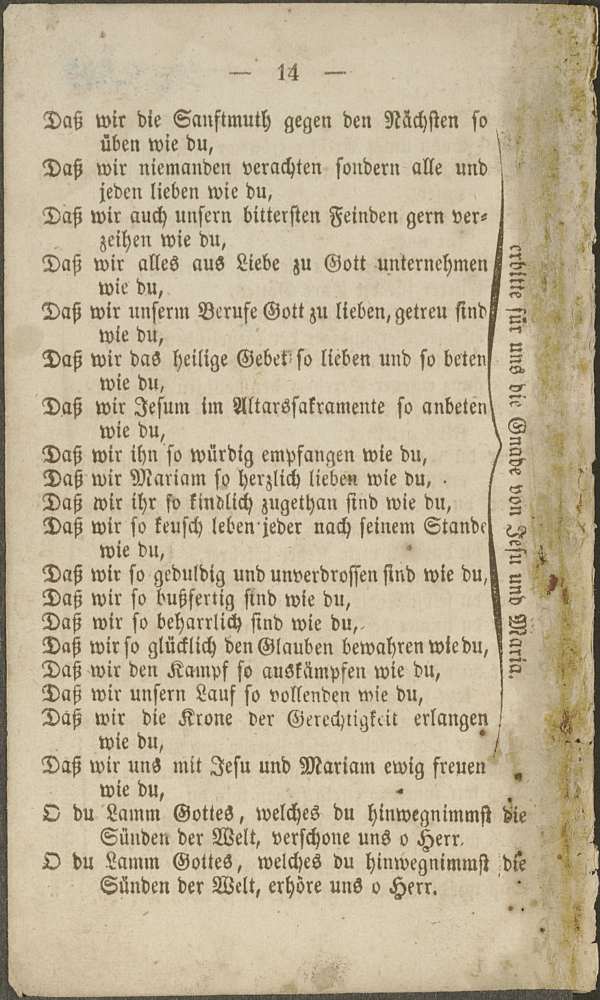 — 14 —
Daß wir die Sanftmuth gegen den Nächsten so
üben wie du,
Daß wir niemanden verachten sondern alle und
jeden lieben wie du,
Daß wir auch unsern bittersten Feinden gern ver-
zeihen wie du,
Daß wir alles aus Liebe zu Gott unternehmen
wie du,
Daß wir unserm Berufe Gott zu lieben, getreu sind
wie du,
Daß wir das heilige Gebet so lieben und so beten
wie du,
Daß wir Jesum im Altarssakramente so anbeten
wie du,
Daß wir ihn so würdig empfangen wie du,
Daß wir Mariam so herzlich lieben wie du,
Daß wir ihr so kindlich zugethan sind wie du,
Daß wir so keusch leben jeder nach seinem Stande
wie du,
Daß wir so geduldig und unverdrossen sind wie du,
Daß wir so bußfertig sind wie du,
Daß wir so beharrlich sind wie du,
Daß wir so glücklich den Glauben bewahren wie du,
Daß wir den Kampf so auskämpfen wie du,
Daß wir unsern Lauf so vollenden wie du,
Daß wir die Krone der Gerechtigkeit erlangen
wie du,
Daß wir uns mit Jesu und Mariam ewig freuen
wie du,
erbitte für uns die Gnade von Jesu und Maria.
O du Lamm Gottes, welches du hinwegnimmst die
Sünden der Welt, verschone uns o Herr.
O du Lamm Gottes, welches du hinwegnimmst die
Sünden der Welt, erhöre uns o Herr.